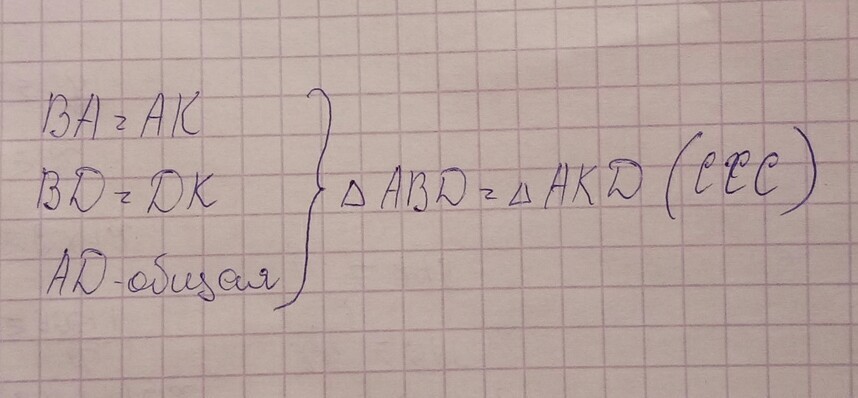 BA = AK
BD = DK
AD - общая
} △ ABD = △ AKD (ССС)